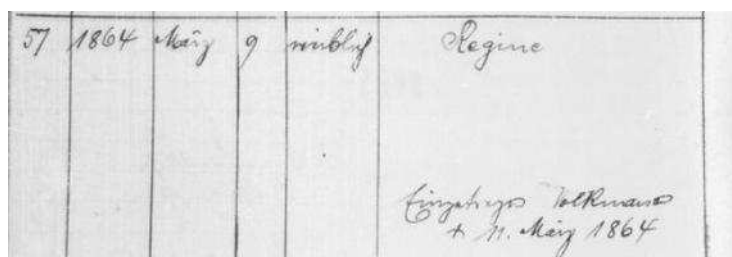 57 1864 März 9 weiblich Regine
Eingetragen Volkmann
+ 11. März 1864